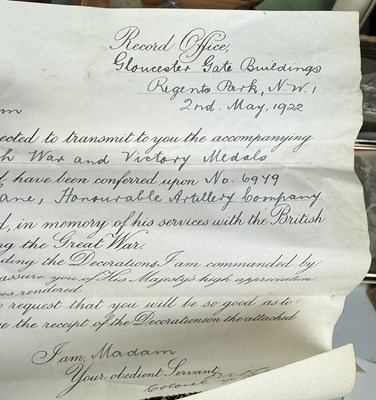 Record Office,
Gloucester Gate Buildings
Regents Park, N.W.1
2nd. May, 1922
ected to transmit to you the accompanying
h War and Victory Medals
have been conferred upon No. 6979
ane, Honourable Artillery Company
d, in memory of his services with the British
ng the Great War.
ding the Decorations I am commanded by
assure you of His Majesty's high appreciation
es rendered.
request that you will be so good as to
the receipt of the Decorations on the attached
I am, Madam
Your obedient Servant
Colonel